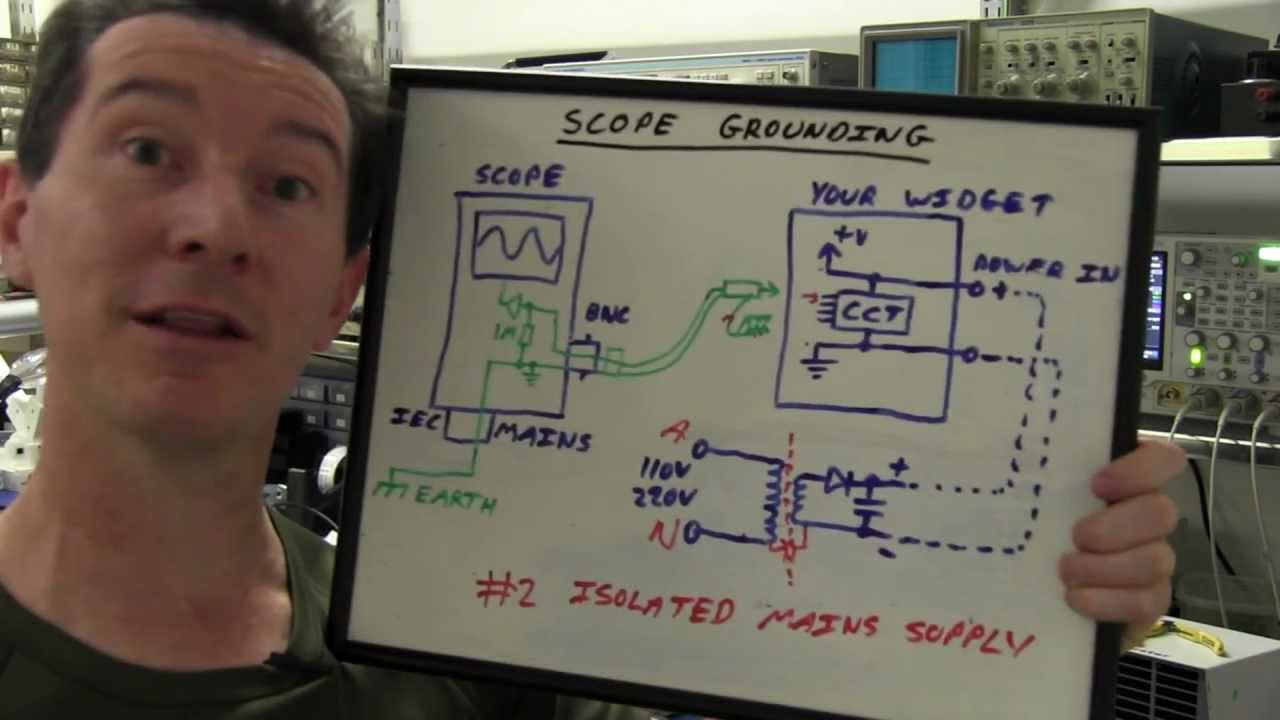 SCOPE GROUNDING
SCOPE
YOUR WIDGET
+V
POWER IN
+
CCT
1M
BNC
IEC
MAINS
EARTH
A
110V
220V
N
+
-
#2 ISOLATED MAINS SUPPLY